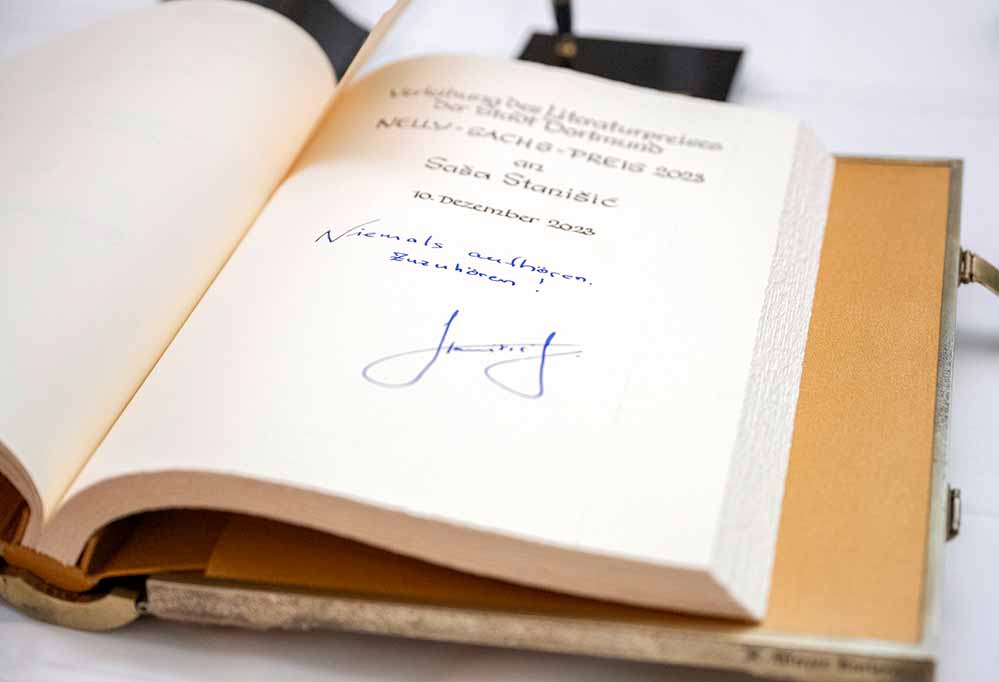 Verleihung des Literaturpreises
der Stadt Dortmund
NELLY-SACHS-PREIS 2023
an
Saša Stanišić
10. Dezember 2023
Niemals aufhören.
Zuzuhören!